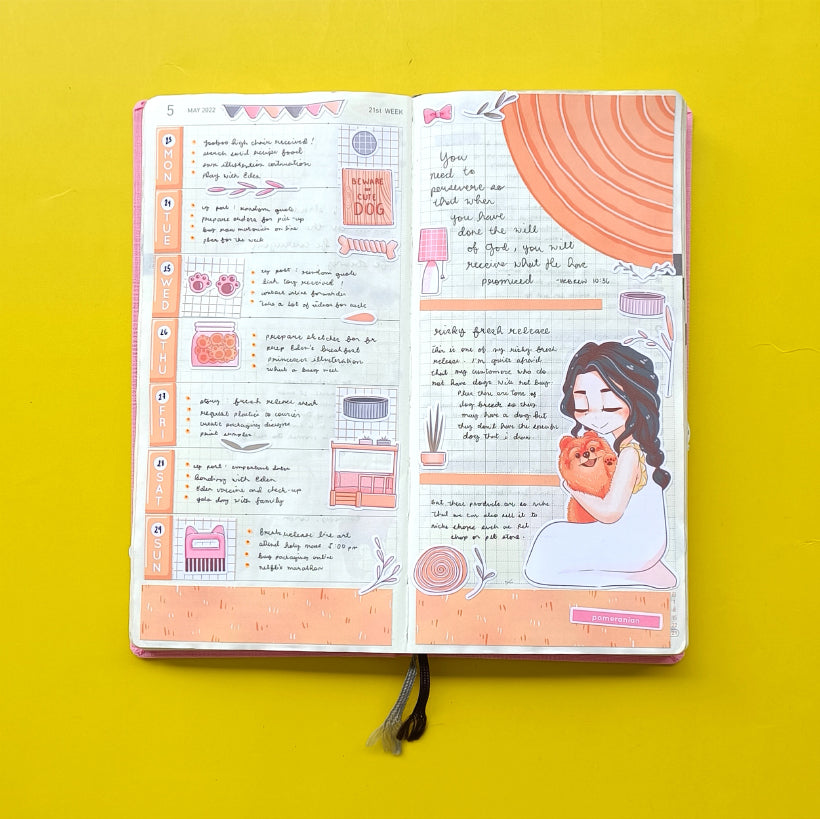 5 MAY 2022 21st WEEK
23 MON
yooboo high chair received!
search solid recipe food
own illustration continuation
play with Eden
BEWARE
OF
CUTE
DOG
24 TUE
ig post : random quote
prepare orders for pick up
buy new materials online
plan for the week
25 WED
ig post : random quote
link toy received!
contact inline forwarder
take a lot of videos for
26 THU
prepare sketches for
prep Eden's breakfast
princess illustration
what a busy week
27 FRI
story fresh release week
request plastic to courier
create packaging designs
print samples
28 SAT
ig post : important dates
bonding with Eden
Eden vaccine and check-up
gala day with family
29 SUN
Break release line art
attend holy mass 5:00 pm
buy packaging online
netflix marathon
You
need to
persevere so
that when
you have
done the will
of God, you will
receive what He has
promised -HEBREW 10:36
risky fresh release
This is one of my risky fresh
release. I'm quite afraid
that my customers who do
not have dogs will not buy.
Plus there are tons of
dog breeds so they
may have a dog but
they don't have the specific
dog that i draw.
But these products are so niche
that we can also sell it to
niche shops such as pet
shop or pet store.
pomeranian